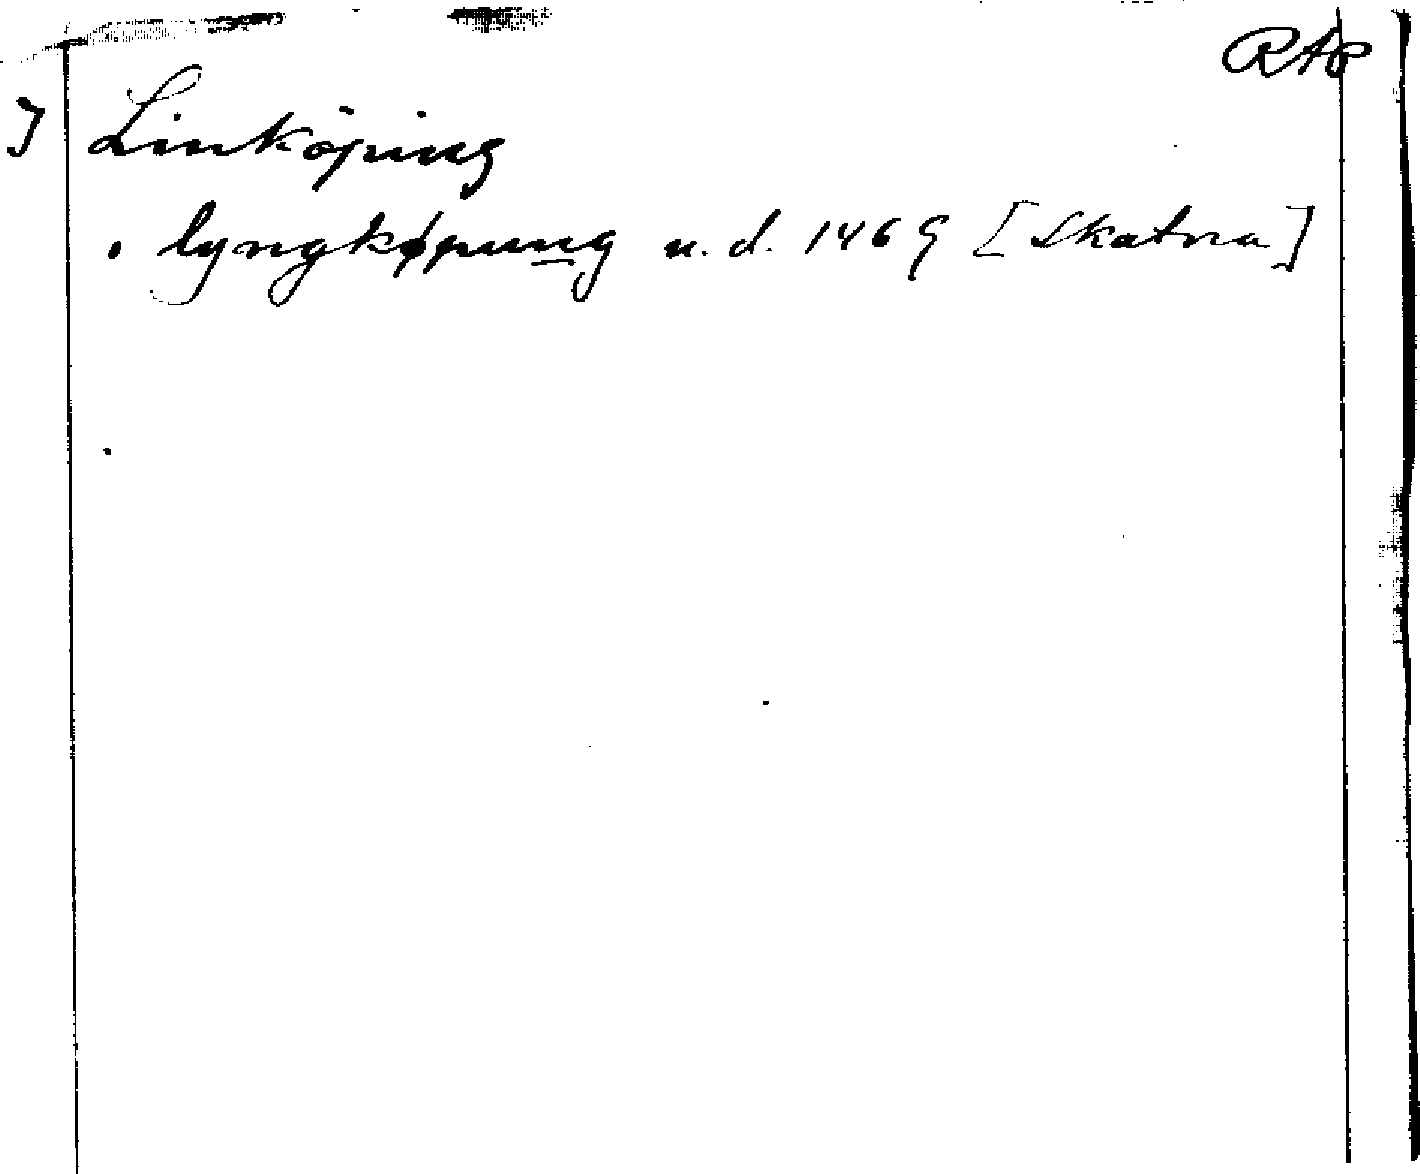 RAP
I Linköping
. lyngkøpung u. d. 1469 [Skatna]